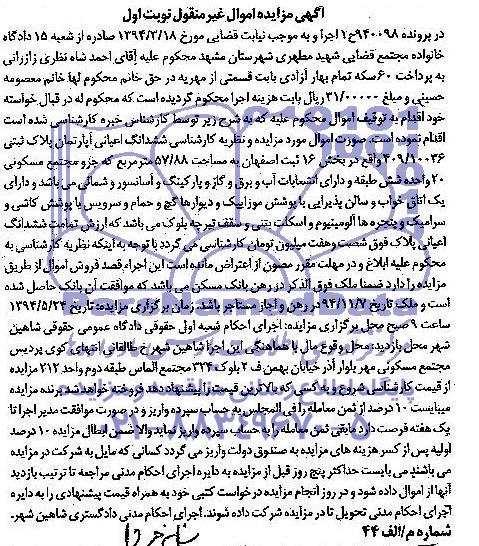 آگهی مزایده اموال غیر منقول نوبت اول
در پرونده ۹۴۰۰۹۸ح۱ اجرا و به موجب نیابت قضایی مورخ ۱۳۹۴/۲/۱۸ صادره از شعبه ۱۵ دادگاه
خانواده مجتمع قضایی شهید مطهری شهرستان مشهد محکوم علیه آقای احمد شاه نظری زازرانی
به پرداخت ۶۰ سکه تمام بهار آزادی بابت قسمتی از مهریه در حق خانم محکوم لها خانم معصومه
حسینی و مبلغ ۳۱/۰۰۰۰۰ ریال بابت هزینه اجرا محکوم گردیده است که محکوم له در قبال خواسته
خود اقدام به توقیف اموال محکوم علیه که به شرح زیر توسط کارشناس خبره کارشناسی شده است
اقدام نموده است. صورت اموال مورد مزایده و نظریه کارشناسی ششدانگ اعیانی آپارتمان پلاک ثبتی
۴۰۹/۱۰۰۳۶ واقع در بخش ۱۶ ثبت اصفهان به مساحت ۵۷/۸۸ مترمربع که جزو مجتمع مسکونی
۲۰ واحده شش طبقه و دارای انشعابات آب و برق و گاز و پارکینگ و آسانسور و شمالی می باشد و دارای
یک اتاق خواب و سالن پذیرایی با پوشش موزاییک و دیوارها گچ و حمام و سرویس با پوشش کاشی و
سرامیک و پنجره ها آلومینیوم و اسکلت بتنی و سقف تیرچه بلوک می باشد که ارزش تمامت ششدانگ
اعیانی پلاک فوق شصت و هفت میلیون تومان کارشناسی می گردد با توجه به اینکه نظریه کارشناسی به
محکوم علیه ابلاغ و در مهلت مقرر مصون از اعتراض مانده است این اجرا قصد فروش اموال از طریق
مزایده را دارد ضمنا ملک فوق الذکر در رهن بانک مسکن می باشد که موافقت آن بانک حاصل شده
است و ملک تاریخ ۹۴/۱۱/۷ در رهن و اجاز مستاجر باشد. زمان برگزاری مزایده: تاریخ ۱۳۹۴/۵/۲۴
ساعت ۹ صبح محل برگزاری مزایده: اجرای احکام شعبه اول حقوقی دادگاه عمومی حقوقی شاهین
شهر محل بازدید: محل وقوع مال با هماهنگی این اجرا شاهین شهر خ طالقانی انتهای کوی پردیس
مجتمع مسکونی مهر بلوار آذر خیابان بهمن ف ۲ بلوک ۳۲۴ مجتمع الماس طبقه دوم واحد ۲۱۲ مزایده
از قیمت کارشناسی شروع و به کسی که بالاترین قیمت را پیشنهاد دهد فروخته خواهد شد برنده مزایده
میبایست ۱۰ درصد از ثمن معامله را فی المجلس به حساب سپرده واریز و در صورت موافقت مدیر اجرا تا
یک هفته فرصت دارد مابقی ثمن معامله را به حساب سپرده واریز نماید والا ضمن ابطال مزایده ۱۰ درصد
اولیه پس از کسر هزینه های مزایده به صندوق دولت واریز می گردد کسانی که مایل به شرکت در مزایده
می باشند می بایست حداکثر پنج روز قبل از مزایده به دایره اجرای احکام مدنی مراجعه تا ترتیب بازدید
آنها از اموال داده شود و در روز انجام مزایده درخواست کتبی خود به همراه قیمت پیشنهادی را به دایره
اجرای احکام مدنی تحویل تا در مزایده شرکت داده شوند. اجرای احکام مدنی دادگستری شاهین شهر.
شماره م/الف ۴۴